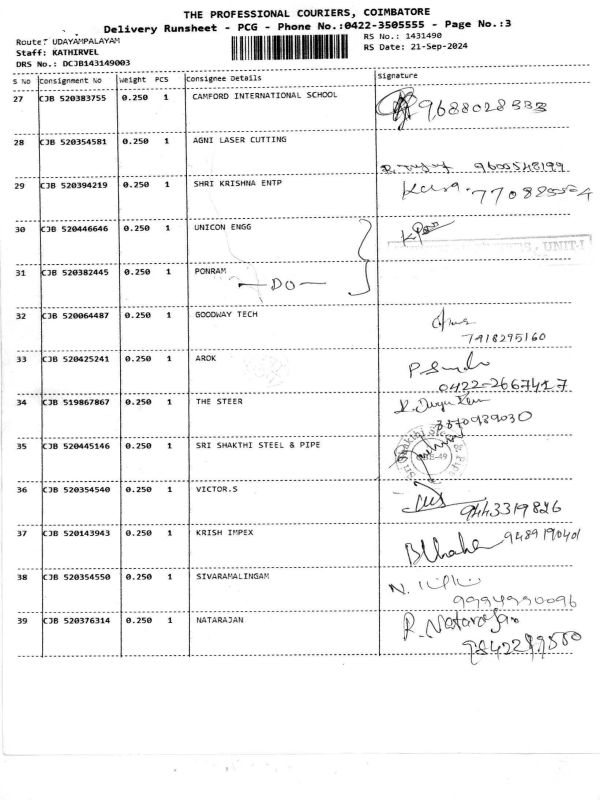 THE PROFESSIONAL COURIERS, COIMBATORE
Delivery Runsheet - PCG - Phone No.:0422-3505555 - Page No.:3
Route: UDAYAMPALAYAM
RS No.: 1431490
Staff: KATHIRVEL
RS Date: 21-Sep-2024
DRS No.: DCJB143149003
S No Consignment No Weight PCS Consignee Details Signature
27 CJB 520383755 0.250 1 CAMFORD INTERNATIONAL SCHOOL 9688028533
28 CJB 520354581 0.250 1 AGNI LASER CUTTING
9600548199
29 CJB 520394219 0.250 1 SHRI KRISHNA ENTP
30 CJB 520446646 0.250 1 UNICON ENGG
UNIT-I
31 CJB 520382445 0.250 1 PONRAM
—DO—
32 CJB 520064487 0.250 1 GOODWAY TECH
7418295160
33 CJB 520425241 0.250 1 AROK
0422-2667417
34 CJB 519867867 0.250 1 THE STEER
35 CJB 520445146 0.250 1 SRI SHAKTHI STEEL & PIPE
36 CJB 520354540 0.250 1 VICTOR.S
9443319826
37 CJB 520143943 0.250 1 KRISH IMPEX
9489190401
38 CJB 520354550 0.250 1 SIVARAMALINGAM
9994990096
39 CJB 520376314 0.250 1 NATARAJAN R. Natarajan